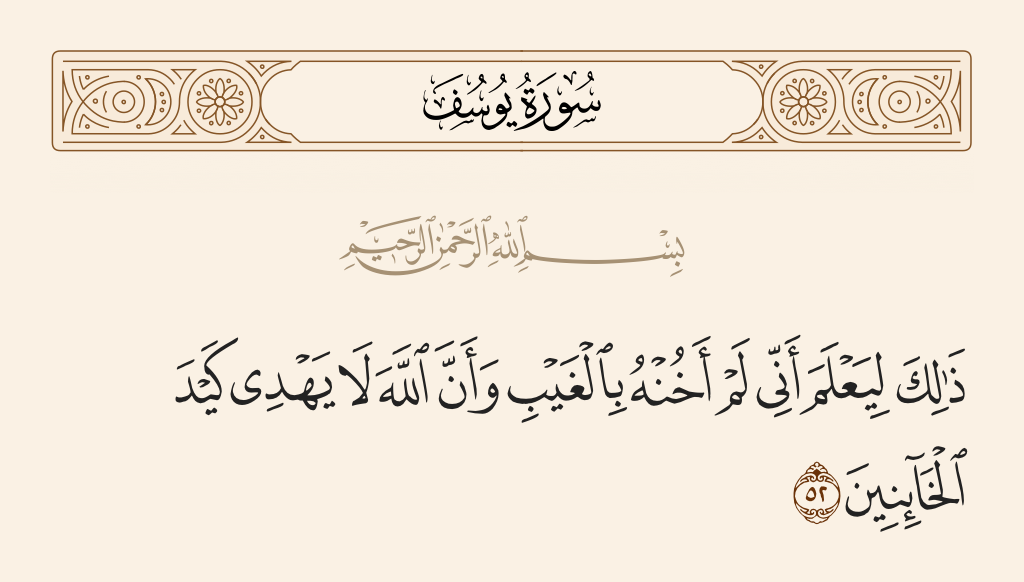 سُورَةُ يُوسُفَ
بِسْمِ ٱللَّهِ ٱلرَّحْمَٰنِ ٱلرَّحِيمِ
ذَٰلِكَ لِيَعْلَمَ أَنِّى لَمْ أَخُنْهُ بِٱلْغَيْبِ وَأَنَّ ٱللَّهَ لَا يَهْدِى كَيْدَ
ٱلْخَآئِنِينَ ٥٢